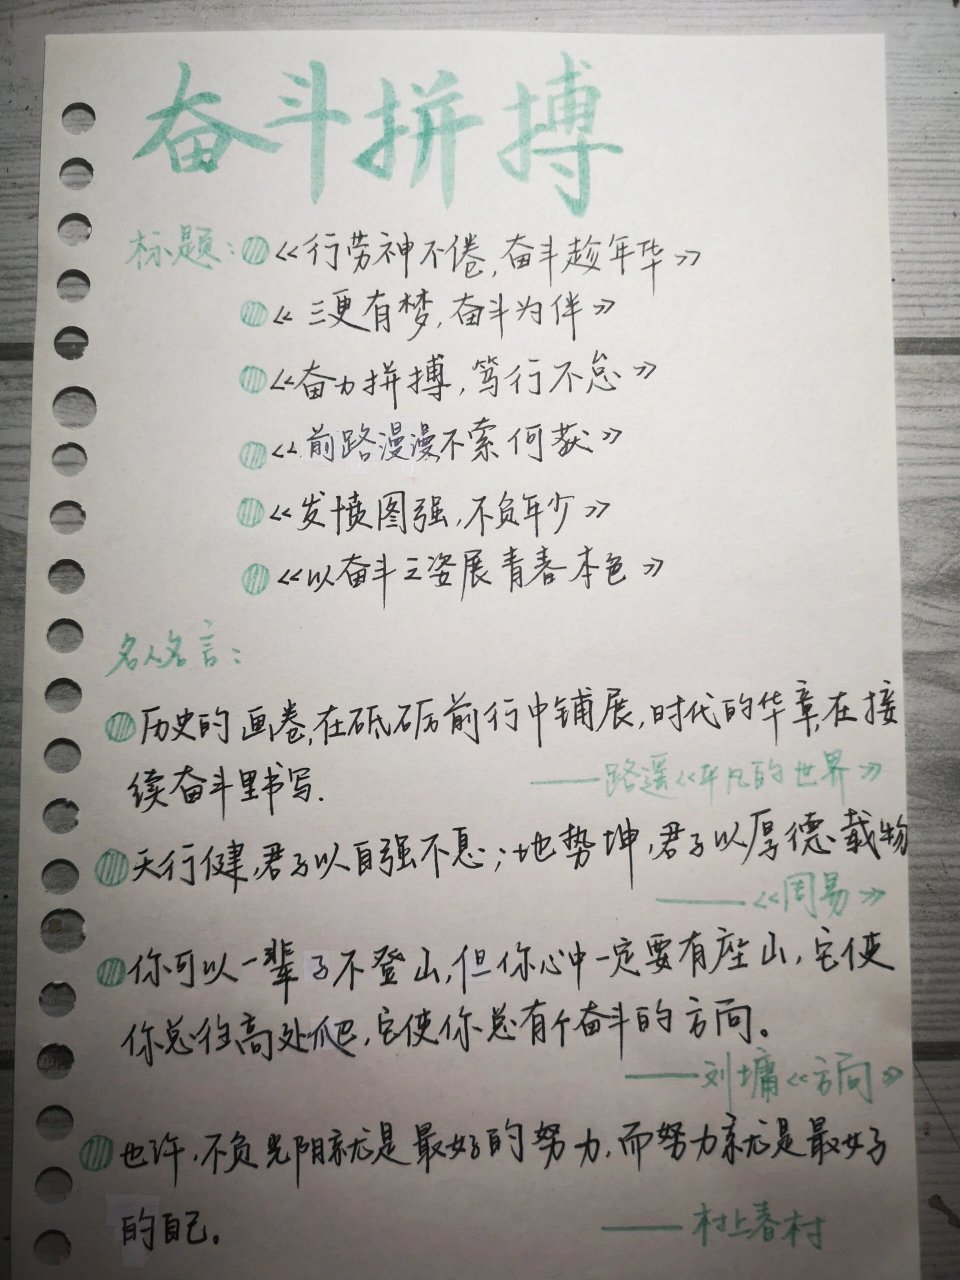 奋斗拼搏
标题：《行劳神不倦，奋斗趁年华》
《三更有梦，奋斗为伴》
《奋力拼搏，笃行不怠》
《前路漫漫不索何获》
《发愤图强，不负年少》
《以奋斗之姿展青春本色》
名人名言：
历史的画卷，在砥砺前行中铺展，时代的华章，在接
续奋斗里书写.
——路遥《平凡的世界》
天行健，君子以自强不息；地势坤，君子以厚德载物
——《周易》
你可以一辈子不登山，但你心中一定要有座山，它使
你总往高处爬，它使你总有个奋斗的方向。
——刘墉《方向》
也许，不负光阴就是最好的努力，而努力就是最好
的自己。
——村上春村